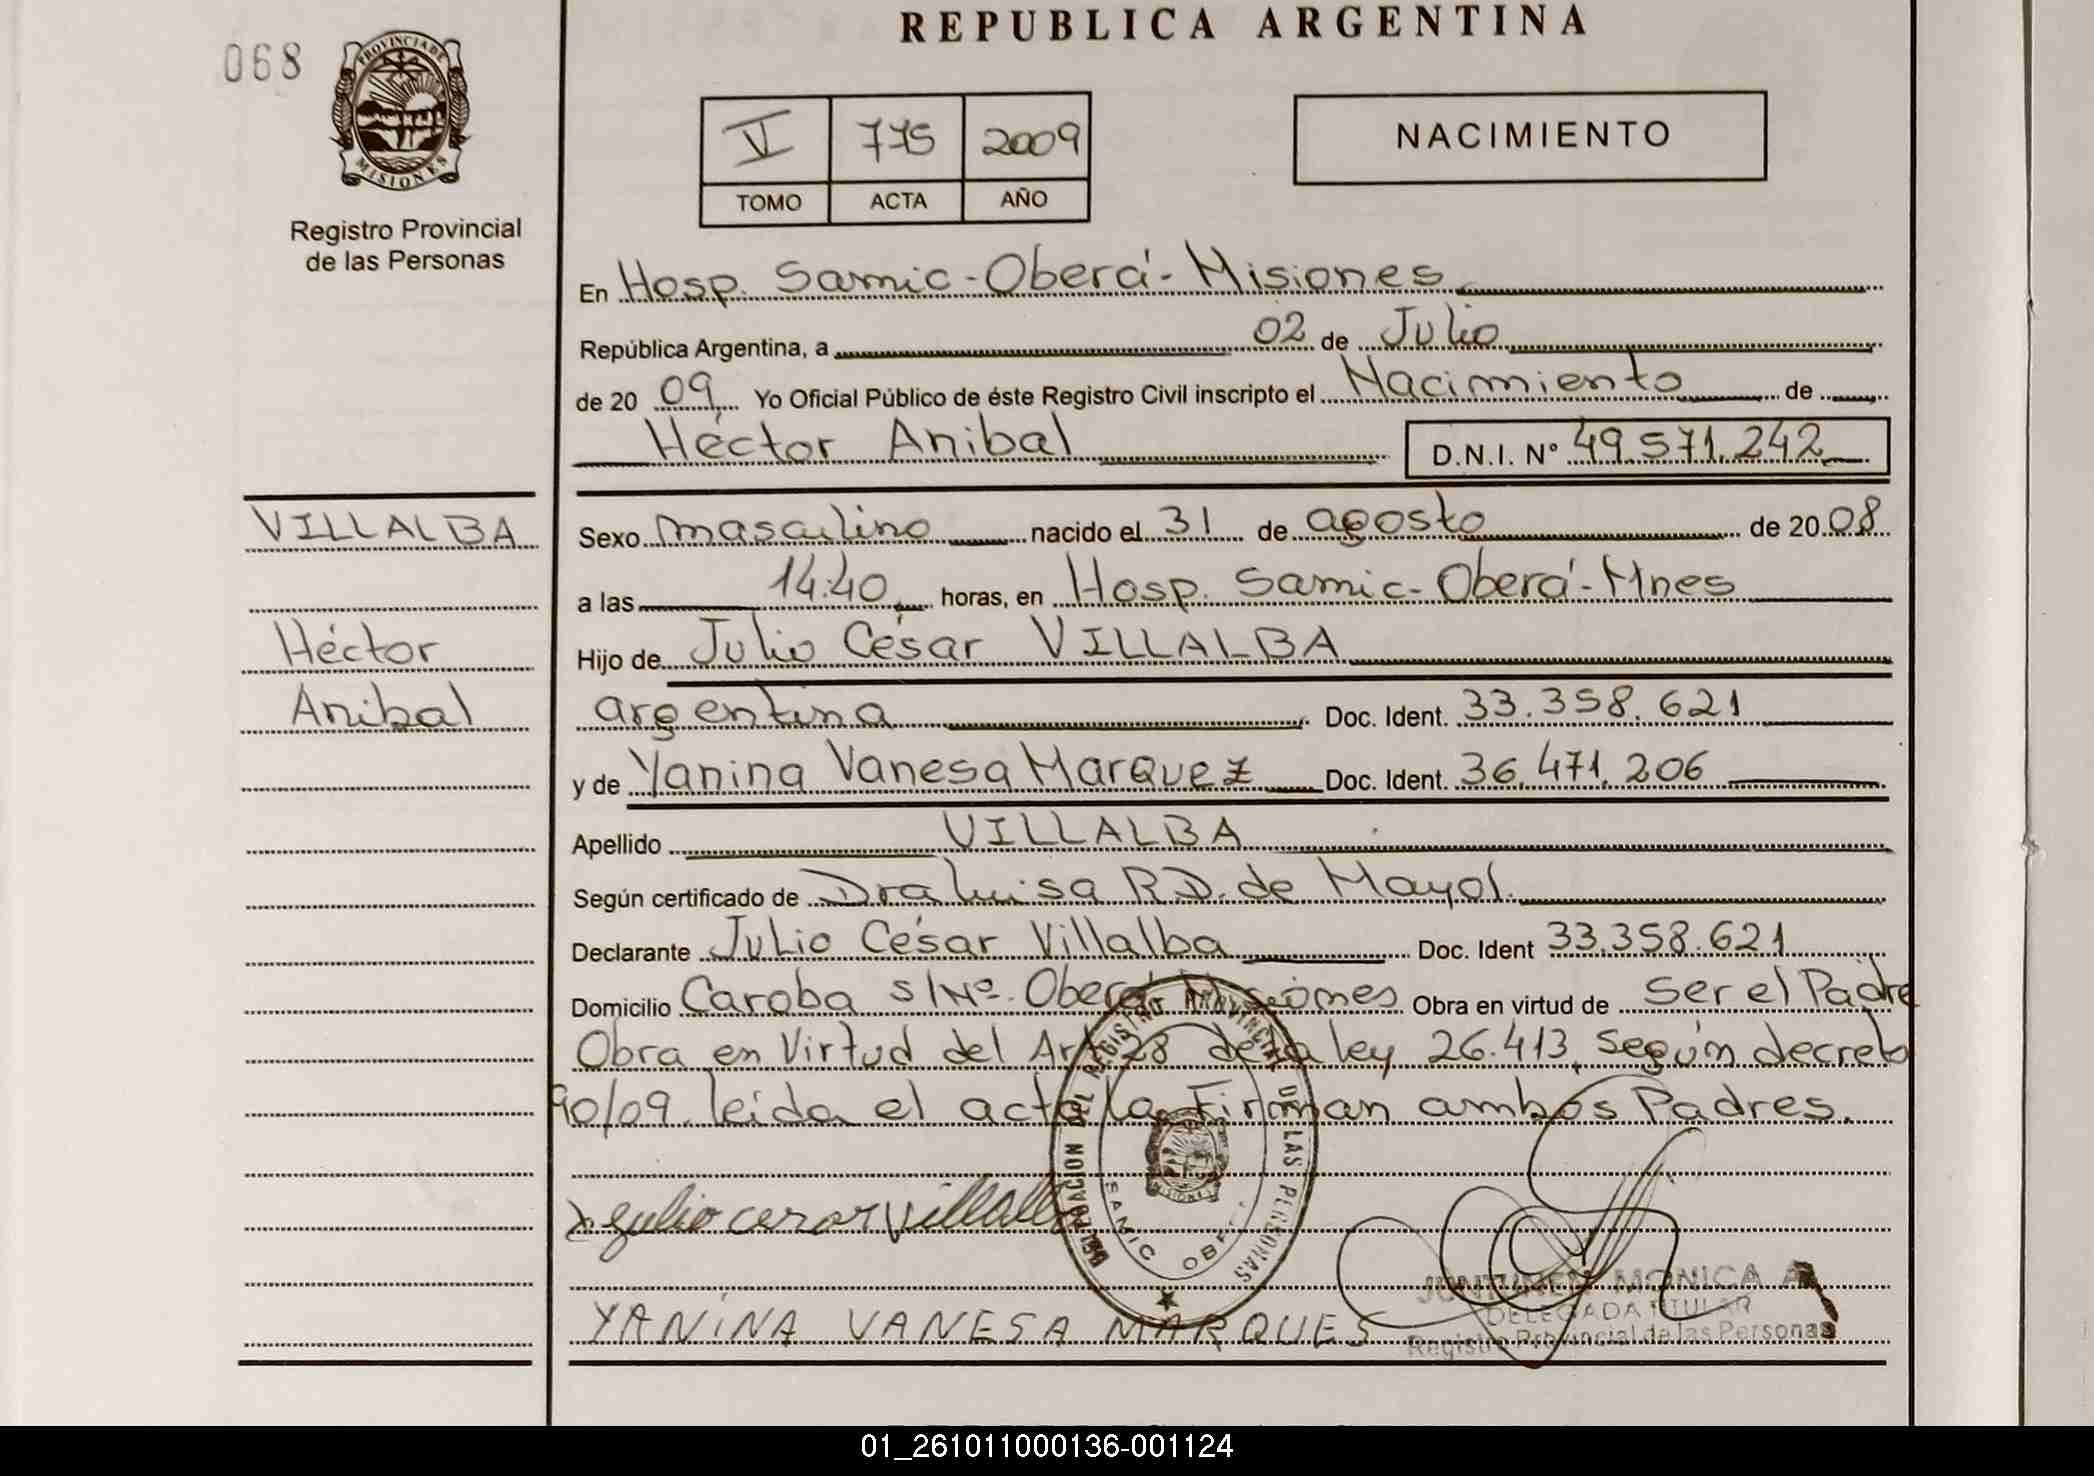 068
PROVINCIA DE
MISIONES
Registro Provincial
de las Personas
REPUBLICA ARGENTINA
V 775 2009
TOMO ACTA AÑO
NACIMIENTO
En Hosp. Samic - Oberá - Misiones
República Argentina, a 02 de Julio
de 20 09 Yo Oficial Público de éste Registro Civil inscripto el Nacimiento de
Héctor Anibal D.N.I. N° 49.571.242
VILLALBA
Héctor
Anibal
Sexo masculino nacido el 31 de agosto de 20 08
a las 14:40 horas, en Hosp. Samic - Oberá - Mnes
Hijo de Julio César VILLALBA
argentina Doc. Ident. 33.358.621
y de Yanina Vanesa Marquez Doc. Ident. 36.471.206
Apellido VILLALBA
Según certificado de Dra Luisa R.D. de Mayol.
Declarante Julio César Villalba Doc. Ident 33.358.621
Domicilio Caroba s/Nº. Oberá Misiones Obra en virtud de Ser el Padre
Obra en Virtud del Art 28 de la ley 26.413, según decreto
90/09. leída el acta la Firman ambos Padres.
Julio cesar villalba
YANINA VANESA MARQUES
DEL REGISTRO PROVINCIAL DE LAS PERSONAS
SAMIC OBERA
MISIONES
MONICA A
DELEGADA TITULAR
Registro Provincial de las Personas
01_261011000136-001124